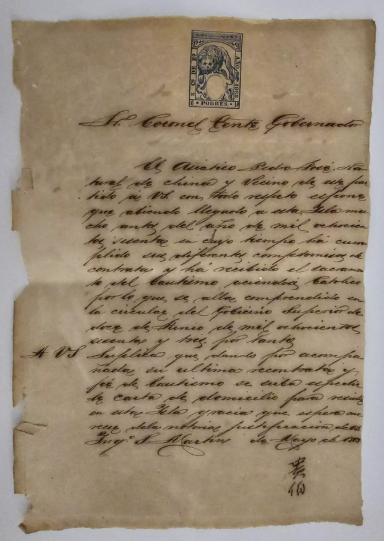 POBRES
Sr. Coronel Tente. Gobernador
El Asiatico Pedro José, na
tural de china y Vecino de este par
tido a VS con todo respeto espone
que abiendo llegado a esta Isla mu
cho antes del año de mil ochocien
tos sesenta en cuyo tiempo ha cum
plido sus diferentes compromisos de
contratas y ha recibido el sacramen
to del bautismo haciendose Catolico
por lo que se alla comprendido en
la circular del Gobierno Superior de
doce de Enero de mil ochocientos
sesenta y tres por tanto
A VS Suplica que dando por acompa
ñadas su ultima recontrata y
fé de bautismo se sirva espedir
le carta de domicilio para residir
en esta Isla gracia que espera me
recer de la notoria justificacion de VS
S. Martin de Mayo